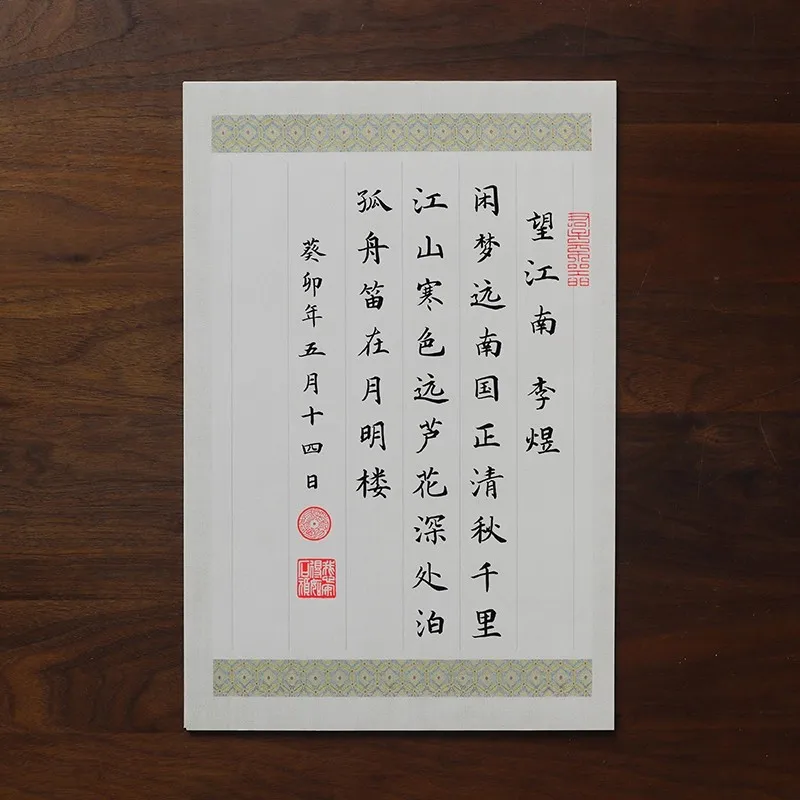 望江南 李煜
闲梦远南国正清秋千里
江山寒色远芦花深处泊
孤舟笛在月明楼
葵卯年五月十四日